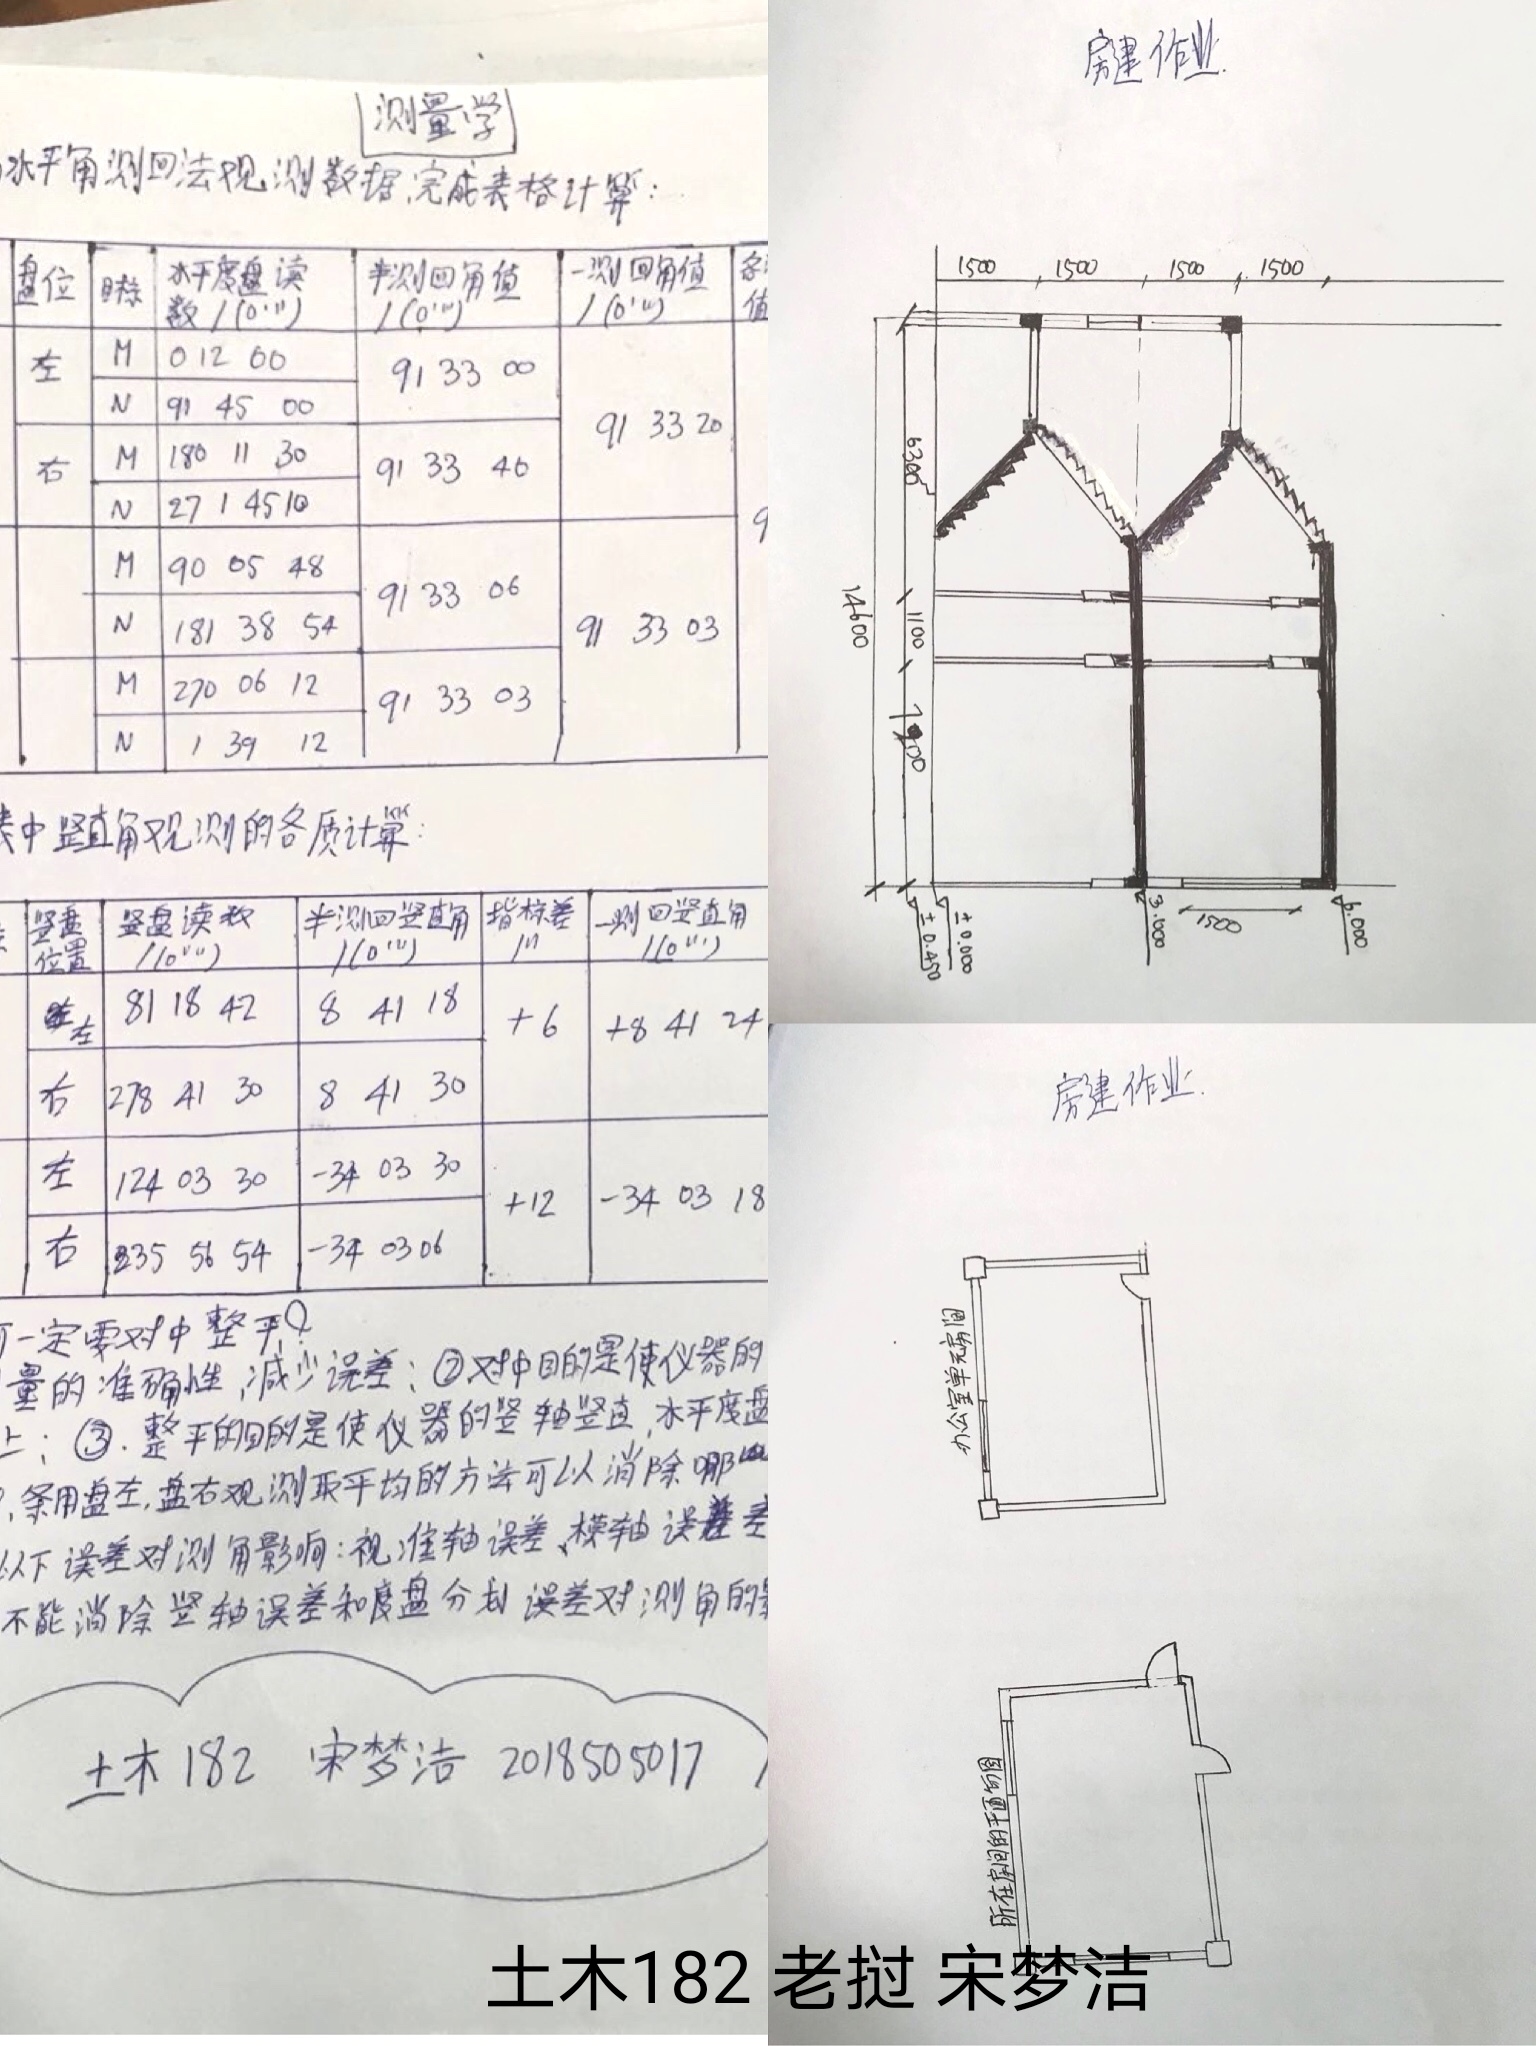 测量学
水平角测回法观测数据,完成表格计算:
盘位 目标 水平度盘读数/(0'") 半测回角值/(0'") 一测回角值/(0'")
左 M 0 12 00 91 33 00 91 33 20
N 91 45 00
右 M 180 11 30 91 33 40
N 271 45 10
M 90 05 48 91 33 06 91 33 03
N 181 38 54
M 270 06 12 91 33 03
N 1 39 12
表中竖直角观测的各质计算:
竖盘位置 竖盘读数/(0'") 半测回竖直角/(0'") 指标差/" 一测回竖直角/(0'")
左 81 18 42 8 41 18 +6 +8 41 24
右 278 41 30 8 41 30
左 124 03 30 -34 03 30 +12 -34 03 18
右 235 56 54 -34 03 06
一定要对中整平?
量的准确性,减少误差;②对中目的是使仪器的
上;③.整平的目的是使仪器的竖轴竖直,水平度盘
,条用盘左,盘右观测取平均的方法可以消除哪
以下误差对测角影响:视准轴误差、横轴误差
不能消除竖轴误差和度盘分划误差对测角的
土木182 宋梦洁 2018505017
房建作业.
1500 1500 1500 1500
6300
1100
14600
±0.450
±0.000
3.000
1500
6.000
房建作业.
办公室单元房间
所在房间的平面图
土木182 老挝 宋梦洁